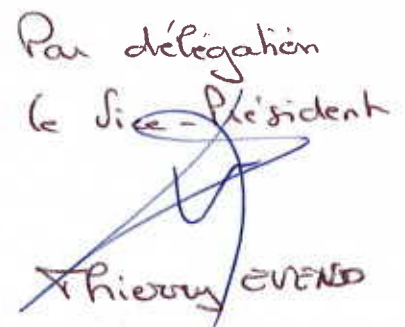 Par délégation
le Vice-Président
Thierry EVENO